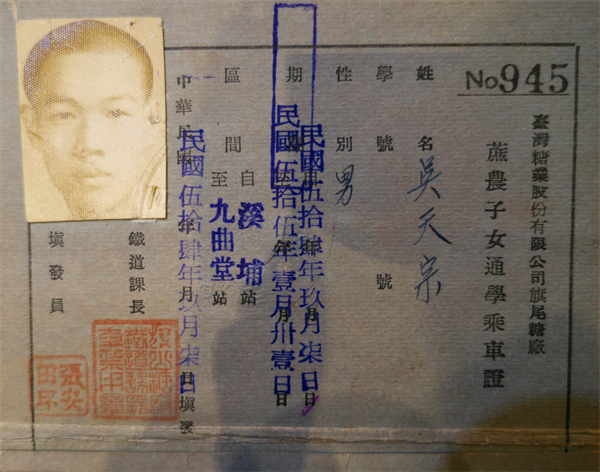 No 945
臺灣糖業股份有限公司旗尾糖廠
蔗農子女通學乘車證
姓名 吳天宗
學號 號
性別 男
期
民國伍拾肆年玖月柒日
民國伍拾伍年壹月卅壹日
區間 自溪埔站
至九曲堂站
中華民國 年 月 日填發
民國伍拾肆年玖月柒日
鐵道課長
填發員